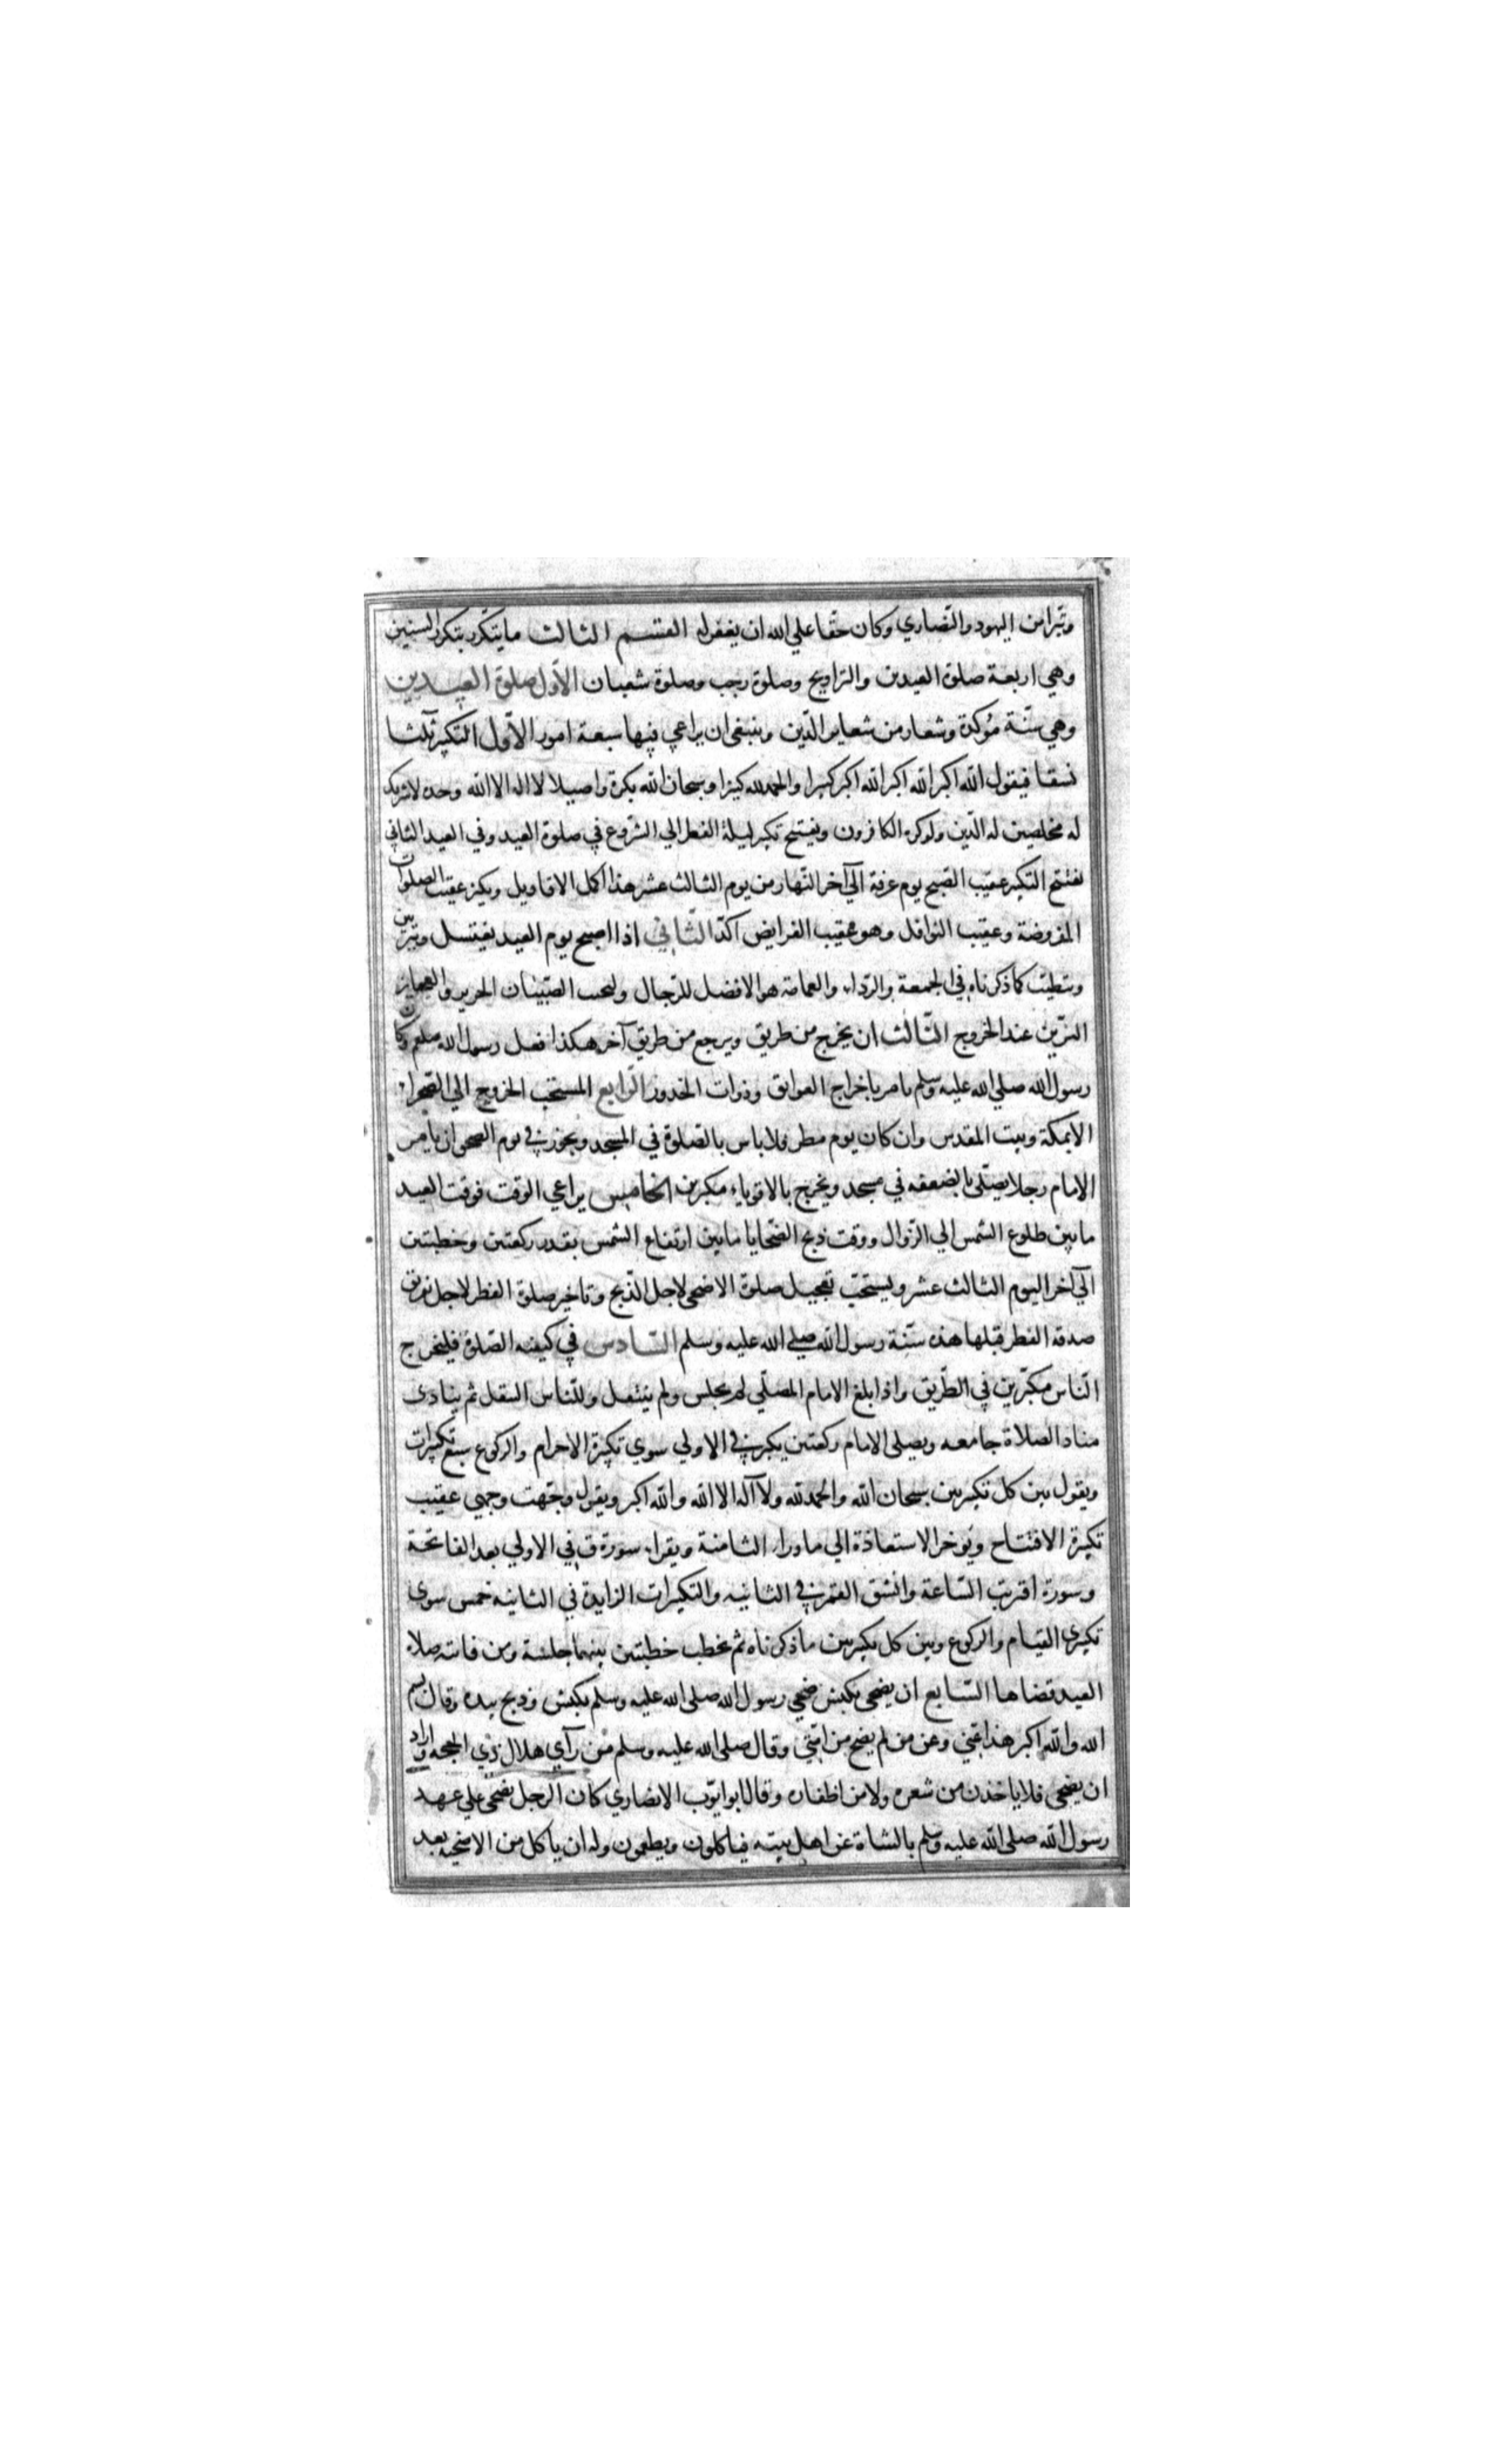 وتبرا من اليهود والنصاري وكان حقا علي الله ان يغفر له القسم الثالث ما يتكرر بتكرر السنين
وهي اربعة صلوة العيدين والتراويح وصلوة رجب وصلوة شعبان الاول صلوة العيدين
وهي سنة مؤكدة وشعار من شعاير الدين وينبغي ان يراعي فيها سبعة امور الاول التكبير ثلثا
نسقا فيقول الله اكبر الله اكبر الله اكبر كبيرا والحمد لله كثيرا وسبحان الله بكرة واصيلا لا اله الا الله وحده لا شريك
له مخلصين له الدين ولو كره الكافرون ويفتتح تكبير ليلة الفطر الي الشروع في صلوة العيد وفي العيد الثاني
يفتتح التكبير عقيب الصبح يوم عرفة الي آخر النهار من يوم الثالث عشر هذا اكمل الاقاويل ويكبر عقيب الصلوات
المفروضة وعقيب النوافل وهو عقيب الفرايض آكد الثاني اذا اصبح يوم العيد يغتسل ويتزين
ويتطيب كما ذكرناه في الجمعة والرداء والعمامة هو الافضل للرجال وليجنب الصبيان الحرير والعجايز
التزين عند الخروج الثالث ان يخرج من طريق ويرجع من طريق آخر هكذا فعل رسول الله صلعم وكان
رسول الله صلي الله عليه وسلم يامر باخراج العواتق وذوات الخدور الرابع المستحب الخروج الي الصحراء
الا بمكة وبيت المقدس وان كان يوم مطر فلا باس بالصلوة في المسجد ويجوز في يوم الصحو ان يامر
الامام رجلا يصلي بالضعفه في مسجد ويخرج بالاقوياء مكبرين الخامس يراعي الوقت فوقت العيد
ما بين طلوع الشمس الي الزوال ووقت ذبح الضحايا ما بين ارتفاع الشمس بقدر ركعتين وخطبتين
الي آخر اليوم الثالث عشر ويستحب تعجيل صلوة الاضحي لاجل الذبح وتاخير صلوة الفطر لاجل تفريق
صدقة الفطر قبلها هذه سنة رسول الله صلي الله عليه وسلم السادس في كيفية الصلوة فليخرج
الناس مكبرين في الطريق واذا بلغ الامام المصلي لم يجلس ولم يتنفل وللناس التنفل ثم ينادي
مناد الصلاة جامعه ويصلي الامام ركعتين يكبر في الاولي سوي تكبيرة الاحرام والركوع سبع تكبيرات
ويقول بين كل تكبيرتين سبحان الله والحمد لله ولا آله الا الله والله اكبر ويقول وجهت وجهي عقيب
تكبيرة الافتتاح ويؤخر الاستعاذة الي ماوراء الثامنة ويقراء سورة ق في الاولي بعد الفاتحة
وسورة اقتربت الساعة وانشق القمر في الثانيه والتكبيرات الزايدة في الثانيه خمس سوي
تكبيري القيام والركوع وبين كل تكبيرتين ما ذكرناه ثم يخطب خطبتين بينهما جلسة ومن فاته صلاة
العيد قضاها السابع ان يضحي بكبش ضحي رسول الله صلي الله عليه وسلم بكبش وذبح بيده وقال بسم
الله والله اكبر هذا عني وعن من لم يضح من امتي وقال صلي الله عليه وسلم من رآي هلال ذي الحجه واراد
ان يضحي فلا ياخذن من شعره ولا من اظفاره وقال ابو ايوب الانصاري كان الرجل يضحي علي عهد
رسول الله صلي الله عليه وسلم بالشاة عن اهل بيته فياكلون ويطعمون وله ان ياكل من الاضحيه بعد